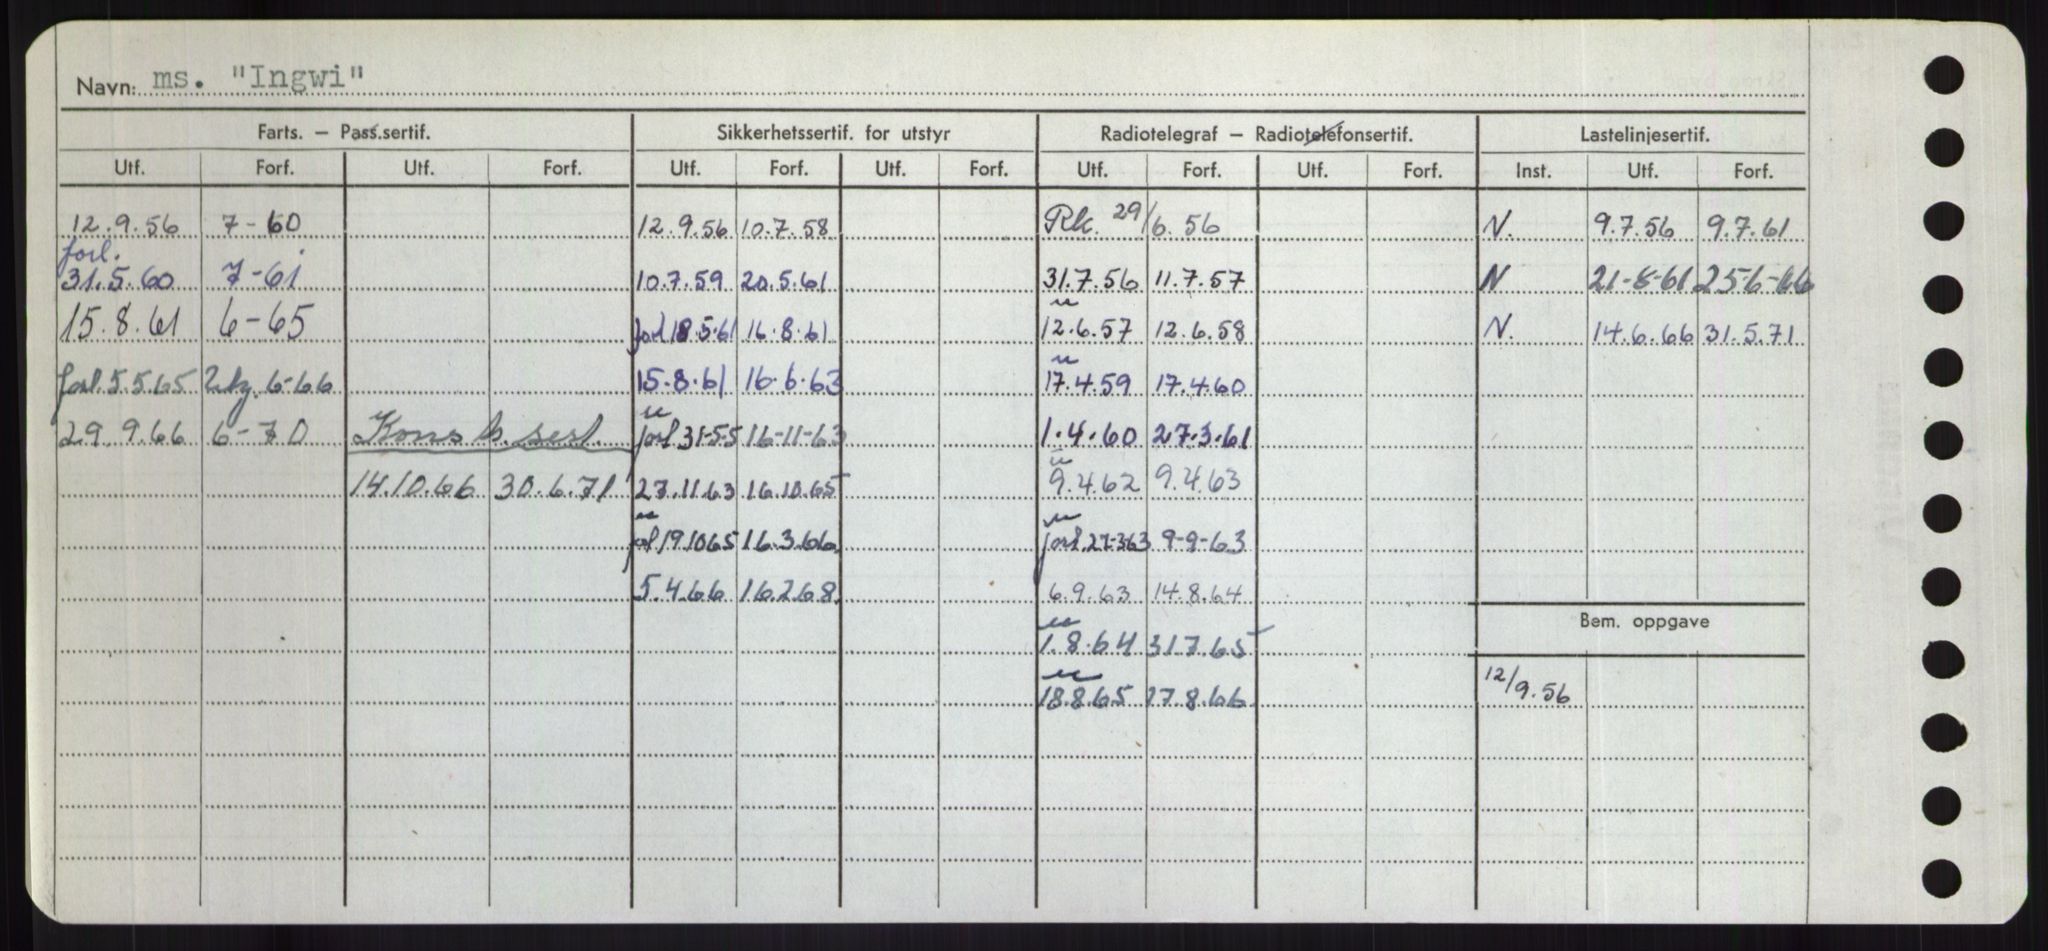 Navn: ms. "Ingwi"
Farts. — Pass.sertif. Sikkerhetssertif. for utstyr Radiotelegraf — Radiotelefonsertif. Lastelinjesertif.
Utf. Forf. Utf. Forf. Utf. Forf. Utf. Forf. Utf. Forf. Utf. Forf. Inst. Utf. Forf.
12.9.56 7-60 12.9.56 10.7.58 Rk. 29/6.56 N. 9.7.56 9.7.61
forl.
31.5.60 7-61 10.7.59 20.5.61 31.7.56 11.7.57 N 21-8-61 25-6-66
15.8.61 6-65 forl 18.5.61 16.8.61 12.6.57 12.6.58 N. 14.6.66 31.5.71
forl. 5.5.65 6-66 15.8.61 16.6.63 17.4.59 17.4.60
29.9.66 6-70 Konstr. sert. forl 31-5-5 16-11-63 1.4.60 27.3.61
14.10.66 30.6.71 27.11.63 16.10.65 9.4.62 9.4.63
forl 19.10.65 16.3.66 forl. 27-3-63 9-9-63
5.4.66 16.2.68 6.9.63 14.8.64
Bem. oppgave
1.8.64 31.7.65
18.8.65 17.8.66 12/9.56